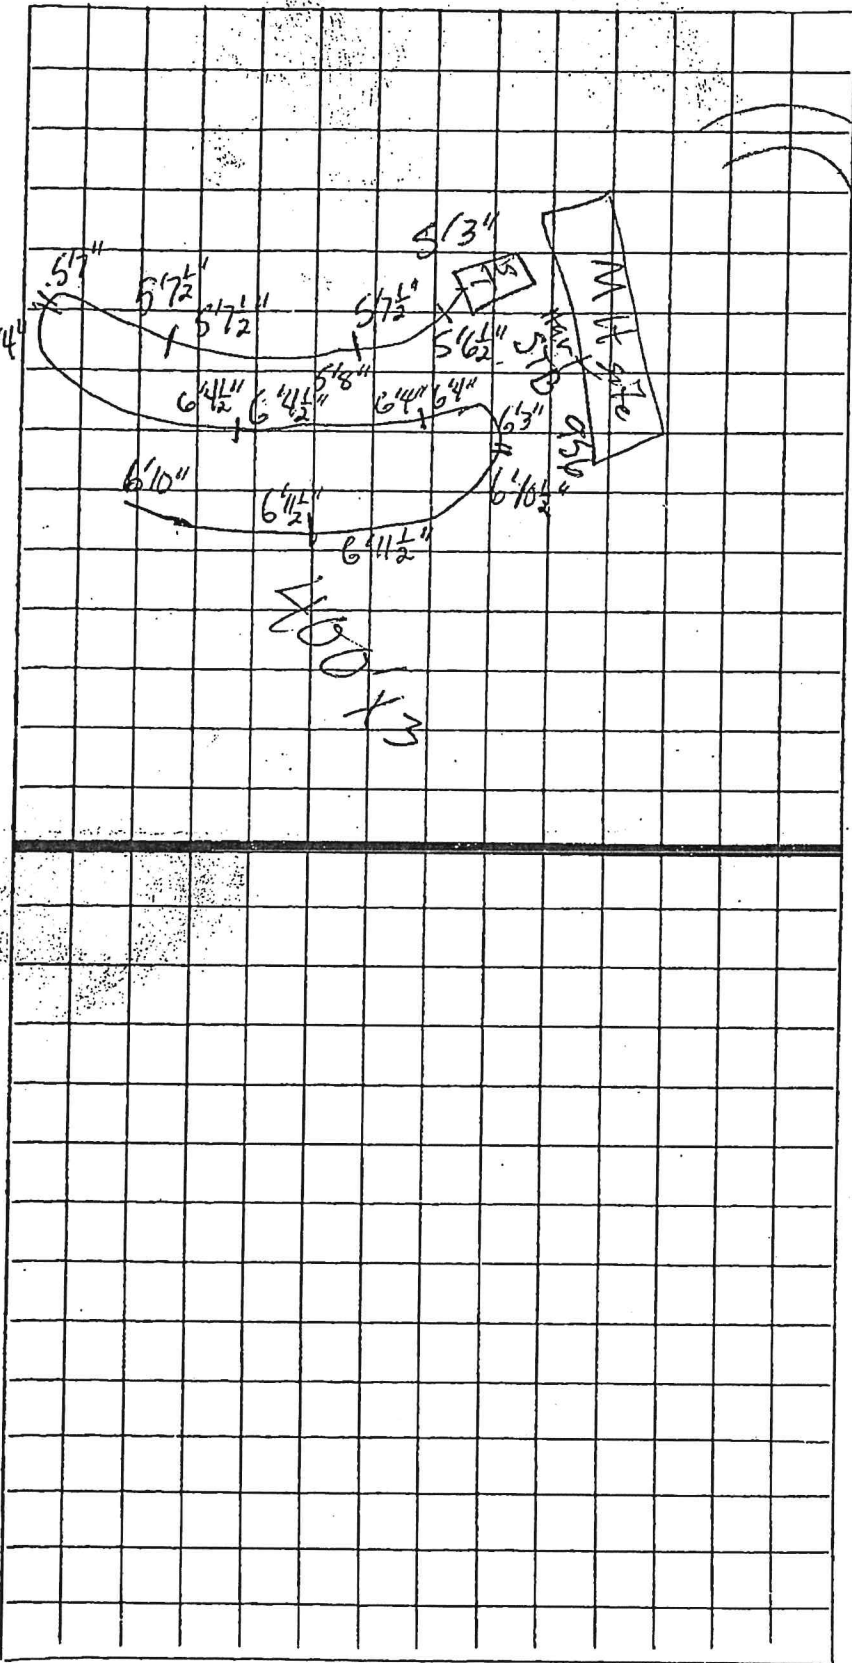 5'3"
ST
MH site
5'7"
5'7½"
5'7½"
5'7½"
5'6½"
5'8"
4"
6'4½"
6'4½"
6'4"
6'4"
6'3"
6'10"
6'11½"
6'11½"
6'10½"
400'x3